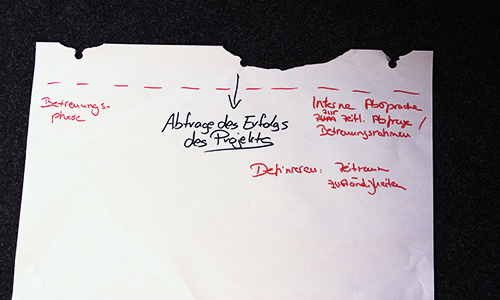 Betreuungs-
phase
Abfrage des Erfolgs
des Projekts
Interne Absprache
zur
zeitl. Abfrage /
Betreuungsrahmen
Definieren: Zeitraum
Zuständigkeiten